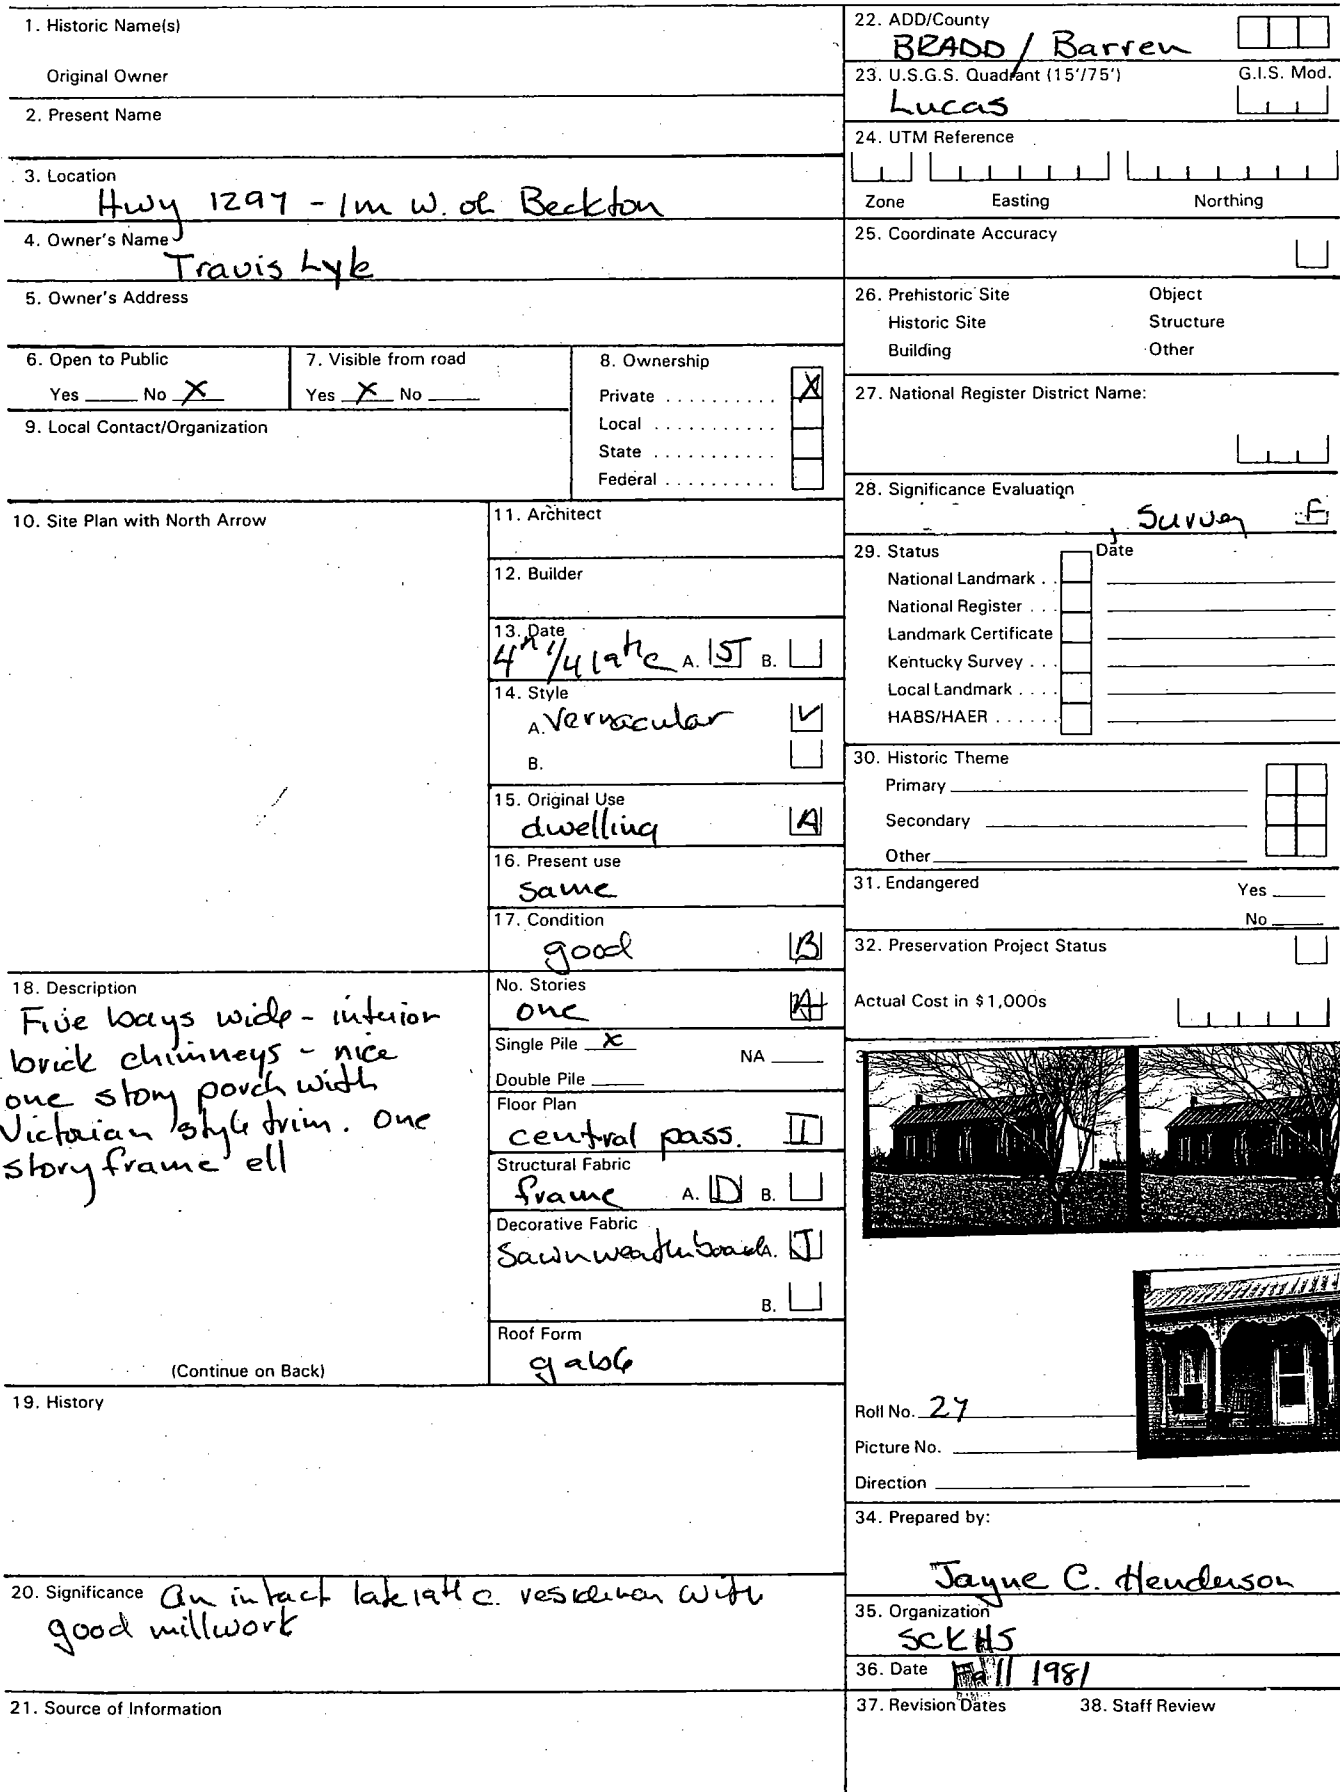 1. Historic Name(s)
Original Owner
2. Present Name
3. Location
Hwy 1297 - 1m W. of Beckton
4. Owner's Name
Travis Lyle
5. Owner's Address
6. Open to Public
Yes ____ No X
7. Visible from road
Yes X No ____
8. Ownership
Private .......... X
Local ...........
State ...........
Federal ..........
9. Local Contact/Organization
10. Site Plan with North Arrow
11. Architect
12. Builder
13. Date
4th 1/4 19th c A. 5 B.
14. Style
A. Vernacular V
B.
15. Original Use
dwelling A
16. Present use
same
17. Condition
good B
18. Description
Five bays wide - interior
brick chimneys - nice
one story porch with
Victorian style trim. one
story frame ell
(Continue on Back)
No. Stories
one A
Single Pile X NA ____
Double Pile ____
Floor Plan
central pass. I
Structural Fabric
frame A. D B.
Decorative Fabric
Sawn weatherboard A. J
B.
Roof Form
gable
19. History
20. Significance An intact late 19th c. residence with
good millwork
21. Source of Information
22. ADD/County
BRADD / Barren
23. U.S.G.S. Quadrant (15'/75') G.I.S. Mod.
Lucas
24. UTM Reference
Zone Easting Northing
25. Coordinate Accuracy
26. Prehistoric Site Object
Historic Site Structure
Building Other
27. National Register District Name:
28. Significance Evaluation
Survey F
29. Status Date
National Landmark . .
National Register . . .
Landmark Certificate
Kentucky Survey . . .
Local Landmark . . . .
HABS/HAER . . . . . .
30. Historic Theme
Primary
Secondary
Other
31. Endangered Yes ____
No ____
32. Preservation Project Status
Actual Cost in $1,000s
3
Roll No. 27
Picture No.
Direction
34. Prepared by:
Jayne C. Henderson
35. Organization
SCKHS
36. Date Fall 1981
37. Revision Dates 38. Staff Review